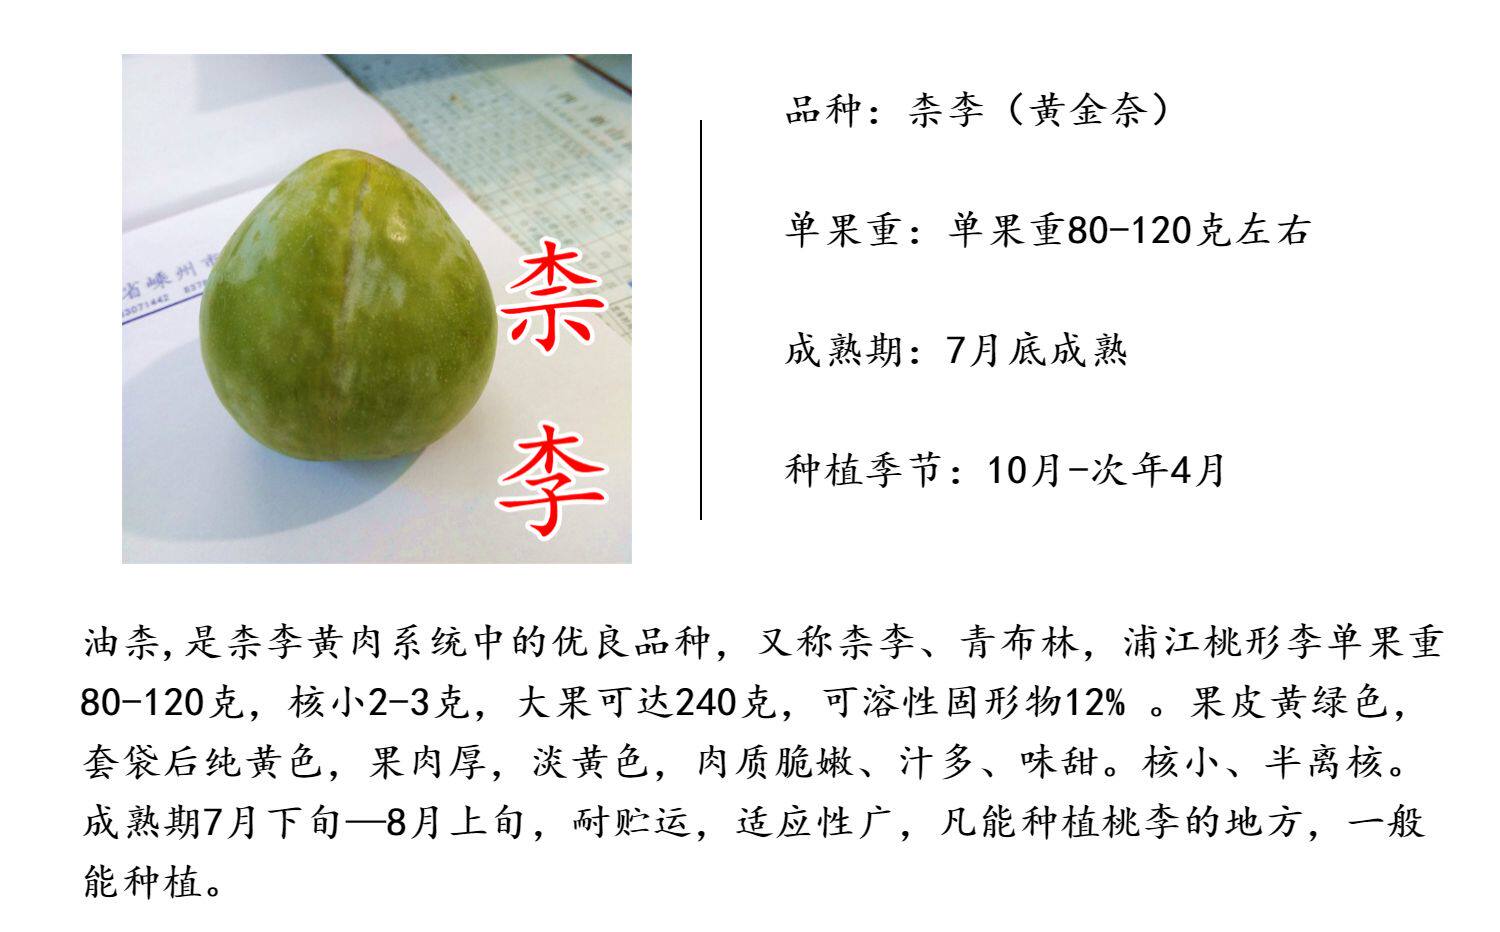 品种：柰李（黄金奈）
单果重：单果重80-120克左右
成熟期：7月底成熟
种植季节：10月-次年4月
省嵊州市
柰
李
油柰,是柰李黄肉系统中的优良品种，又称柰李、青布林，浦江桃形李单果重
80-120克，核小2-3克，大果可达240克，可溶性固形物12% 。果皮黄绿色，
套袋后纯黄色，果肉厚，淡黄色，肉质脆嫩、汁多、味甜。核小、半离核。
成熟期7月下旬—8月上旬，耐贮运，适应性广，凡能种植桃李的地方，一般
能种植。